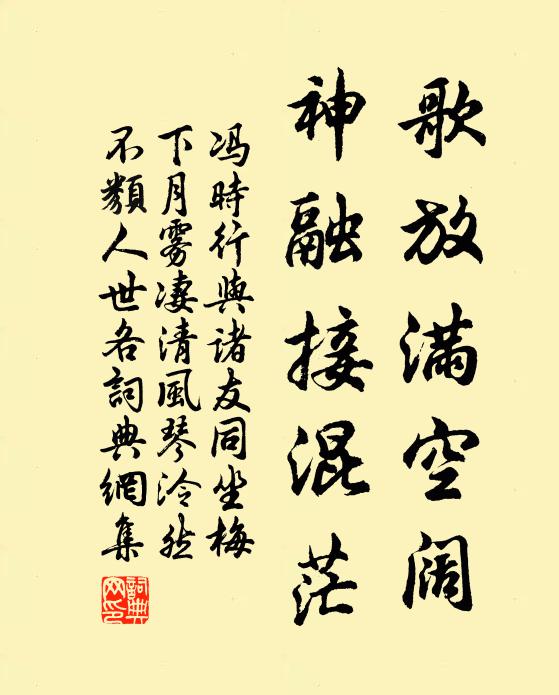 歌放满空阔
神融接混茫
冯時行與諸友同坐梅
下月雾淒清風琴泠然
不類人世各詞典網集
詞典
网印